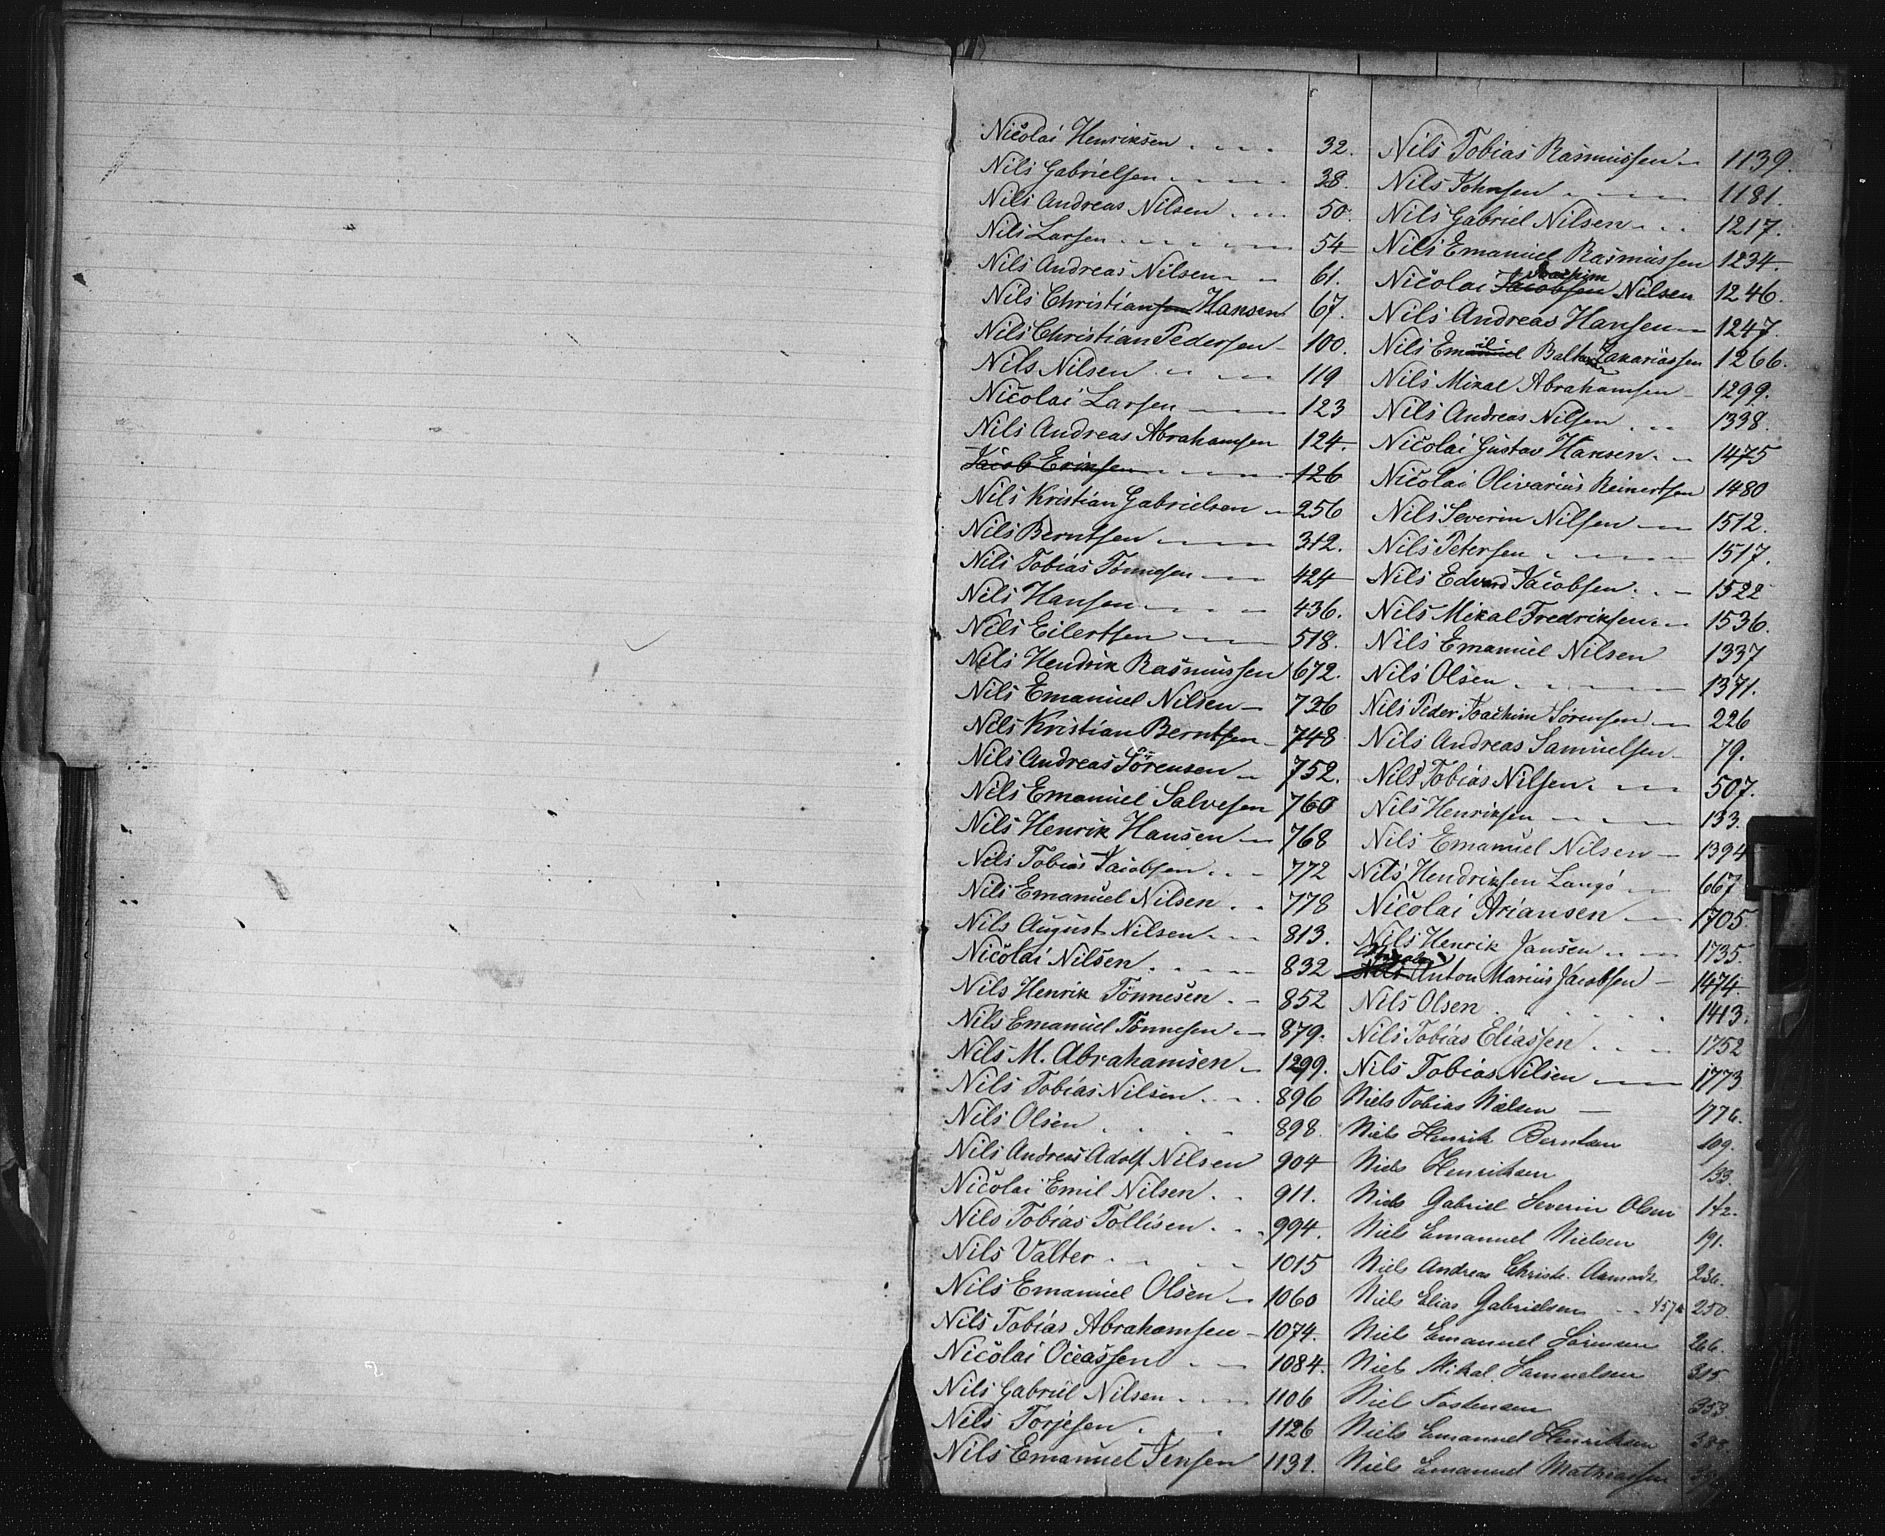 Nicolai Henriksen 32.
Nils Gabrielsen 38.
Nils Andreas Nilsen 50.
Nils Larsen 54
Nils Andreas Nilsen 61.
Nils Christiansen Hansen 67.
Nils Christian Pedersen 100.
Nils Nilsen 119
Nicolai Larsen 123
Nils Andreas Abrahamsen 124.
Jacob Eriksen 126
Nils Kristian Gabrielsen 256
Nils Berntsen 312.
Nils Tobias Tønnesen 424
Nils Hansen 436.
Nils Eilertsen 518.
Nils Hendrik Rasmussen 672.
Nils Emanuel Nilsen 726
Nils Kristian Berntsen 748
Nils Andreas Sørensen 752.
Nils Emanuel Salvesen 760
Nils Henrik Hansen 768
Nils Tobias Jacobsen 772
Nils Emanuel Nilsen 778
Nils August Nilsen 813.
Nicolai Nilsen 832
Nils Henrik Tønnesen 852
Nils Emanuel Tønnesen 879.
Nils M. Abrahamsen 1299.
Nils Tobias Nilsen 896
Nils Olsen 898.
Nils Andreas Adolf Nilsen 904
Nicolai Emil Nilsen 911.
Nils Tobias Tollisen 994.
Nils Valter 1015
Nils Emanuel Olsen 1060
Nils Tobias Abrahamsen 1074.
Nicolai Oceassen 1084.
Nils Gabriel Nilsen 1106
Nils Torjesen 1126
Nils Emanuel Jensen 1131.
Nils Tobias Rasmussen 1139.
Nils Johnsen 1181.
Nils Gabriel Nilsen 1217.
Nils Emanuel Rasmussen 1234.
Nicolai Jacobsen Joachim Nilsen 1246.
Nils Andreas Hansen 1247
Nils Emil Zakariassen 1266.
Nils Mikal Abrahamsen 1299.
Nils Andreas Nilsen 1338.
Nicolai Gustav Hansen 1475
Nicolai Olivarius Reinertsen 1480
Nils Severin Nilsen 1512.
Nils Petersen 1517.
Nils Edvard Jacobsen 1522
Nils Mikal Fredriksen 1536.
Nils Emanuel Nilsen 1337
Nils Olsen 1371.
Nils Peder Joachim Sørensen 226
Nils Andreas Samuelsen 79.
Nils Tobias Nilsen 507.
Nils Henriksen 133.
Nils Emanuel Nilsen 1394
Nils Hendriksen Langø 667
Nicolai Ariansen 1705.
Nils Henrik Jansen 1735.
Nils Anton Marius Jacobsen 1474
Nils Olsen 1413.
Nils Tobias Eliassen 1752
Nils Tobias Nilsen 1773
Niels Tobias Nielsen 1776.
Niels Henrik Berntsen 109.
Niels Henriksen 133.
Niels Gabriel Severin Olsen 142.
Niels Emanuel Nielsen 191.
Niels Andreas Christ. Aamodt 236.
Niels Elias Gabrielsen 457 250.
Niels Emanuel Sørensen 266.
Niels Mikal Samuelsen 315
Niels Tostensen 353
Niels Emanuel Henriksen
Niels Emanuel Mathiassen